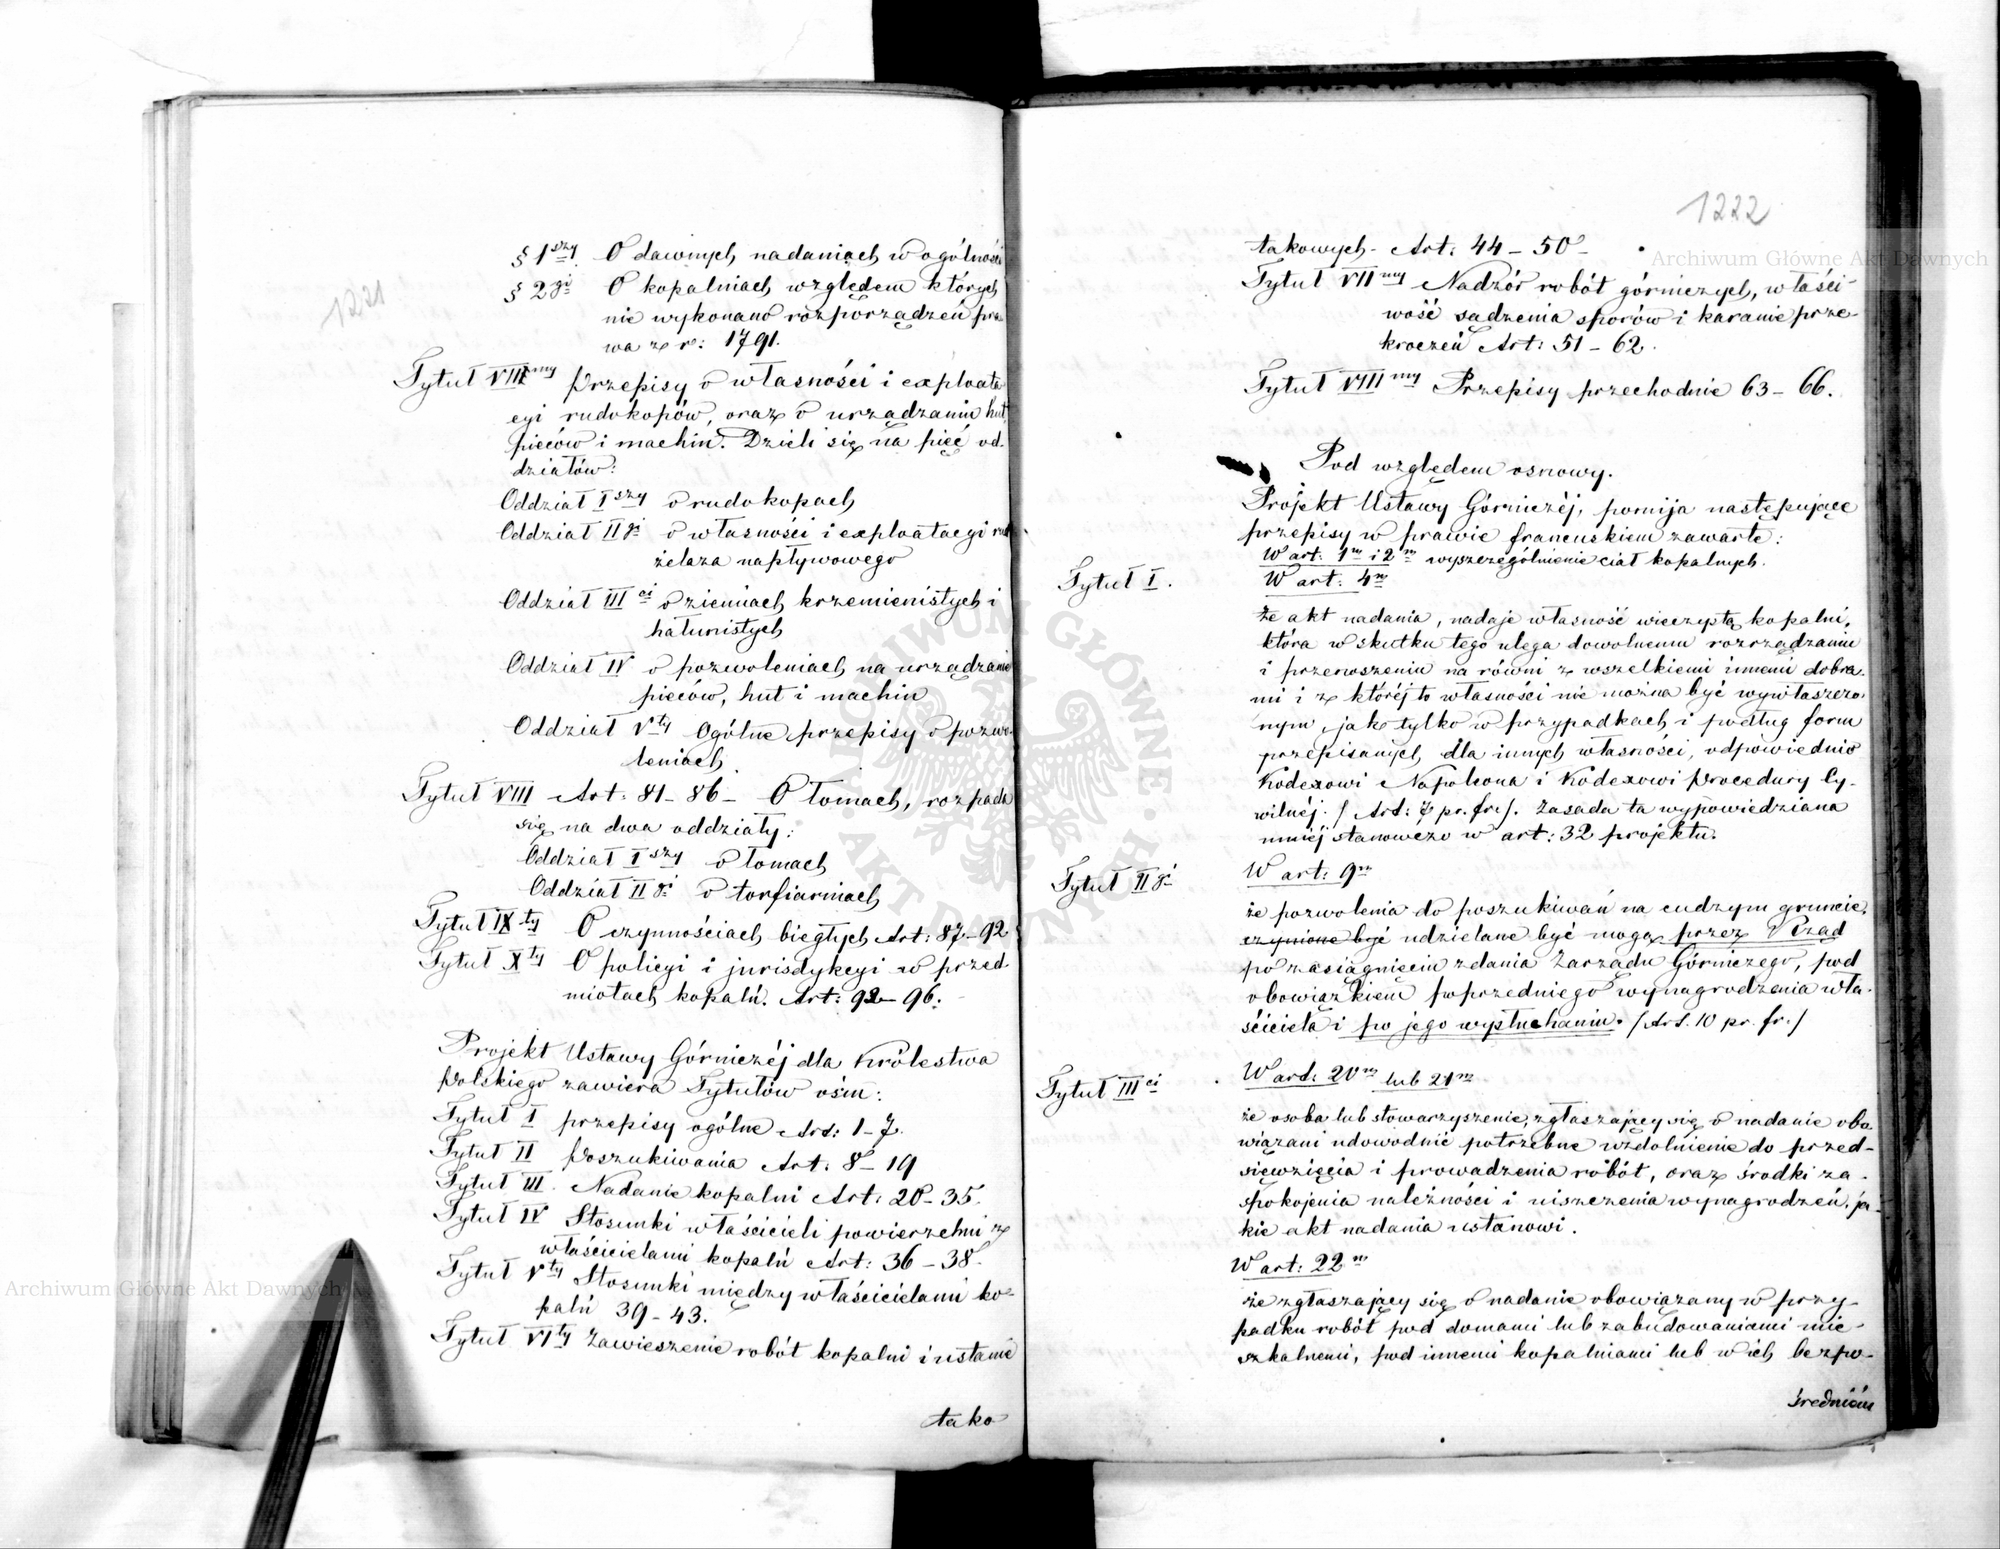 1221
§ 1szy O dawnych nadaniach w ogólności
§ 2gi O kopalniach względem których
nie wykonano rozporządzeń pra-
wa z r: 1791.
Tytuł VIImy Przepisy o własności i exploata
cyi rudokopów, oraz o urządzaniu hut,
pieców i machin. Dzieli się na pięć od-
działów:
Oddział Iszy o rudokopach
Oddział IIgi o własności i exploatacyi rud
żelaza napływowego
Oddział IIIci o ziemiach krzemienistych i
hałunistych
Oddział IV o pozwoleniach na urządzanie
pieców, hut i machin
Oddział Vty Ogólne przepisy o pozwo-
leniach
Tytuł VIII Art: 81–86– O łomach, rozpada
się na dwa oddziały:
Oddział Iszy o łomach
Oddział IIgi o torfiarniach
Tytuł IXty O czynnościach biegłych Art: 87–92
Tytuł Xty O policyi i jurisdykcyi w przed-
miotach kopalń. Art: 92–96.
Projekt Ustawy Górniczéj dla Królestwa
Polskiego zawiera Tytułów ośm:
Tytuł I przepisy ogólne Art: 1–7.
Tytuł II Poszukiwania Art: 8–19
Tytuł III. Nadanie kopalni Art: 20–35.
Tytuł IV Stosunki właścicieli powierzchni z
właścicielami kopalń Art: 36–38.
Tytuł Vty Stosunki między właścicielami ko-
palń 39–43.
Tytuł VIty Zawieszenie robót kopalni i ustanie
tako
1222
takowych. Art: 44–50–
Tytuł VIImy Nadzór robót górniczych, właści-
wość sądzenia sporów i karanie prze-
kroczeń Art: 51–62.
Tytuł VIIImy Przepisy przechodnie 63–66.
Pod względem osnowy.
Projekt Ustawy Górniczéj, pomija następujące
przepisy w prawie francuskiem zawarte:
Tytuł I.
W art: 1m i 2m wyszczególnienie ciał kopalnych.
W art: 4m
że akt nadania, nadaje własność wieczystą kopalni,
która w skutku tego ulega dowolnemu rozrządzaniu
i przenoszeniu na równi z wszelkiemi innemi dobra-
mi i z któréj to własności nie można być wywłaszczo-
nym, jak tylko w przypadkach i podług form
przepisanych dla innych własności, odpowiednio
Kodexowi Napoleona i Kodexowi Procedury Cy-
wilnéj. / Art: 7 pr. fr. /. Zasada ta wypowiedziana
mniej stanowczo w art: 32 projektu.
Tytuł IIgi
W art: 9m
że pozwolenia do poszukiwań na cudzym gruncie,
czynione być udzielane być mogą przez Rząd
po zasiągnięciu zdania Zarządu Górniczego, pod
obowiązkiem poprzedniego wynagrodzenia wła-
ściciela i po jego wysłuchaniu. / Art. 10 pr. fr. /
Tytuł IIIci
W art: 20m lub 21m
że osoba lub stowarzyszenie, zgłaszający się o nadanie obo-
wiązani udowodnić potrzebne uzdolnienie do przed-
sięwzięcia i prowadzenia robót, oraz środki za-
spokojenia należności i uiszczenia wynagrodzeń, ja-
kie akt nadania ustanowi.
W art: 22m
że zgłaszający się o nadanie obowiązany w przy-
padku robót pod domami lub zabudowaniami mie-
szkalnemi, pod innemi kopalniami lub w ich bezpo-
średniém
Archiwum Główne Akt Dawnych
Archiwum Główne Akt Dawnych
ARCHIWUM GŁÓWNE AKT DAWNYCH